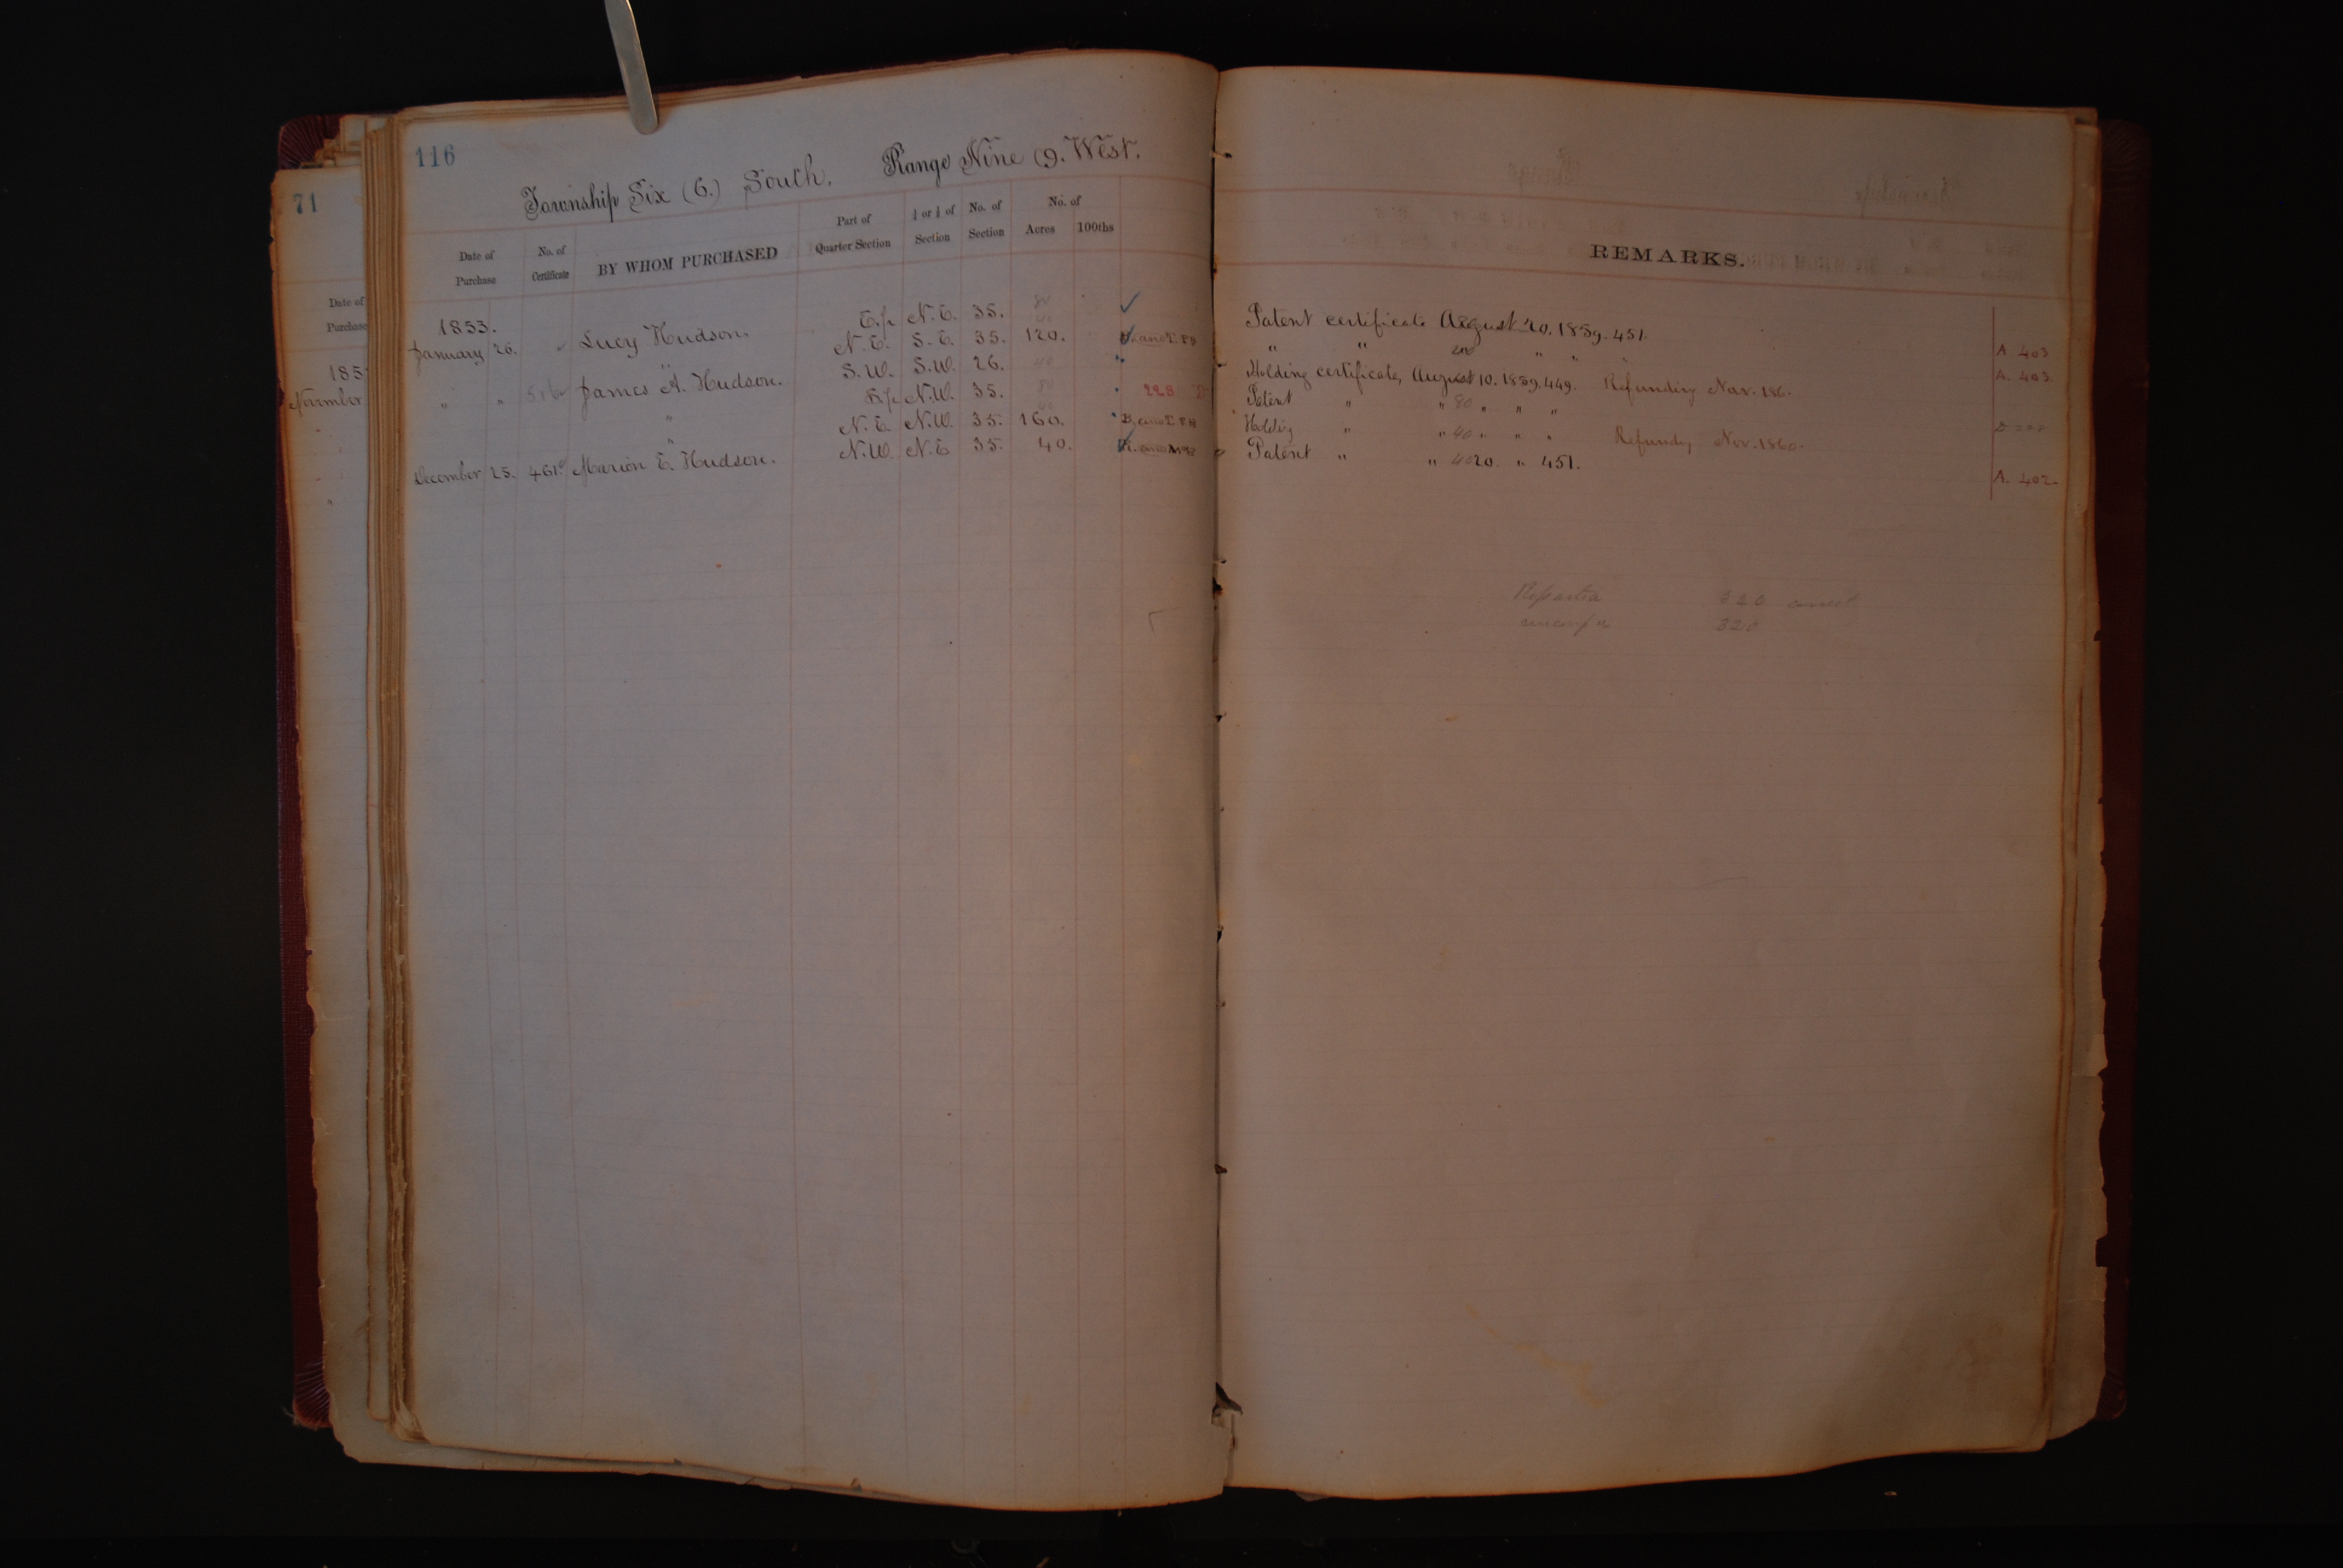 116
Township Six (6.) South. Range Nine (9. West.
71
Date of Purchase No. of Certificate BY WHOM PURCHASED Part of Quarter Section ½ or ¼ of Section No. of Section No. of Acres 100ths
1853. E.½ N.E. 35. 80
January 26. " Lucy Hudson. N.E. S.E. 35. 120.
" S.W. S.W. 26. 40
" " James A. Hudson. N.W. 35. 80
" N.E. N.W. 35. 160.
" N.W. N.E. 35. 40.
December 25. 461. Marion E. Hudson.
228
Date of
Purchase
185
November
REMARKS.
Patent certificate August 20, 1859. 451. A 403
" " " " A. 403
Holding certificate, August 10. 1859. 449. Refunding Nov. 186.
Patent " " 80 " " "
Holding " " 40 " " " Refundg Nov. 1860.
Patent " " 4020. " 451. A. 402.
340
320